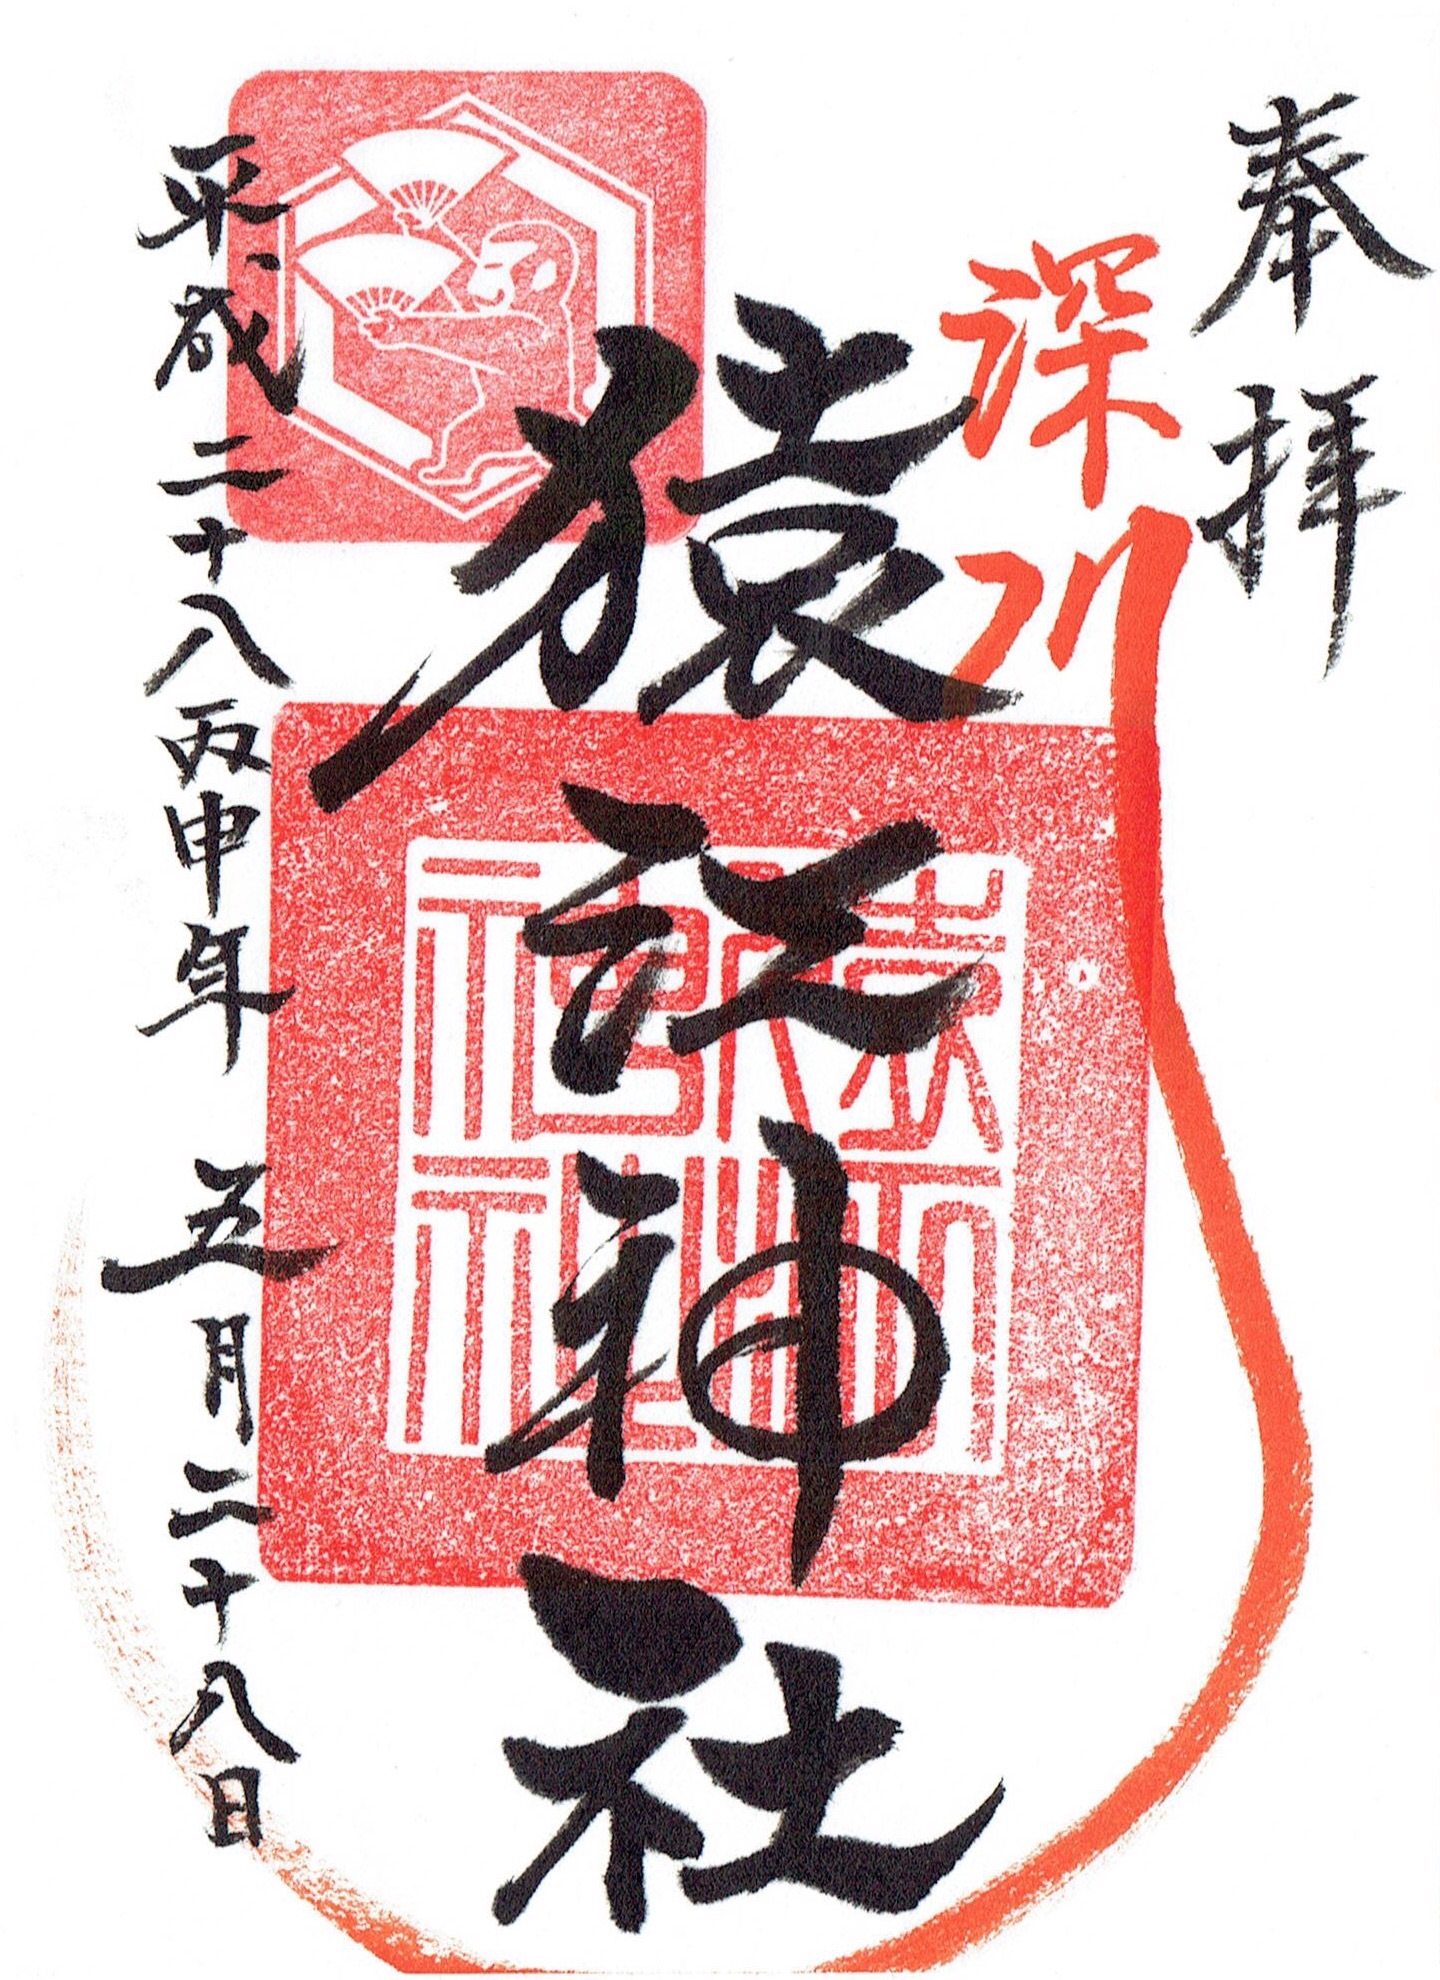 奉拝
深川
猿江神社
平成二十八丙申年 五月二十八日
神社